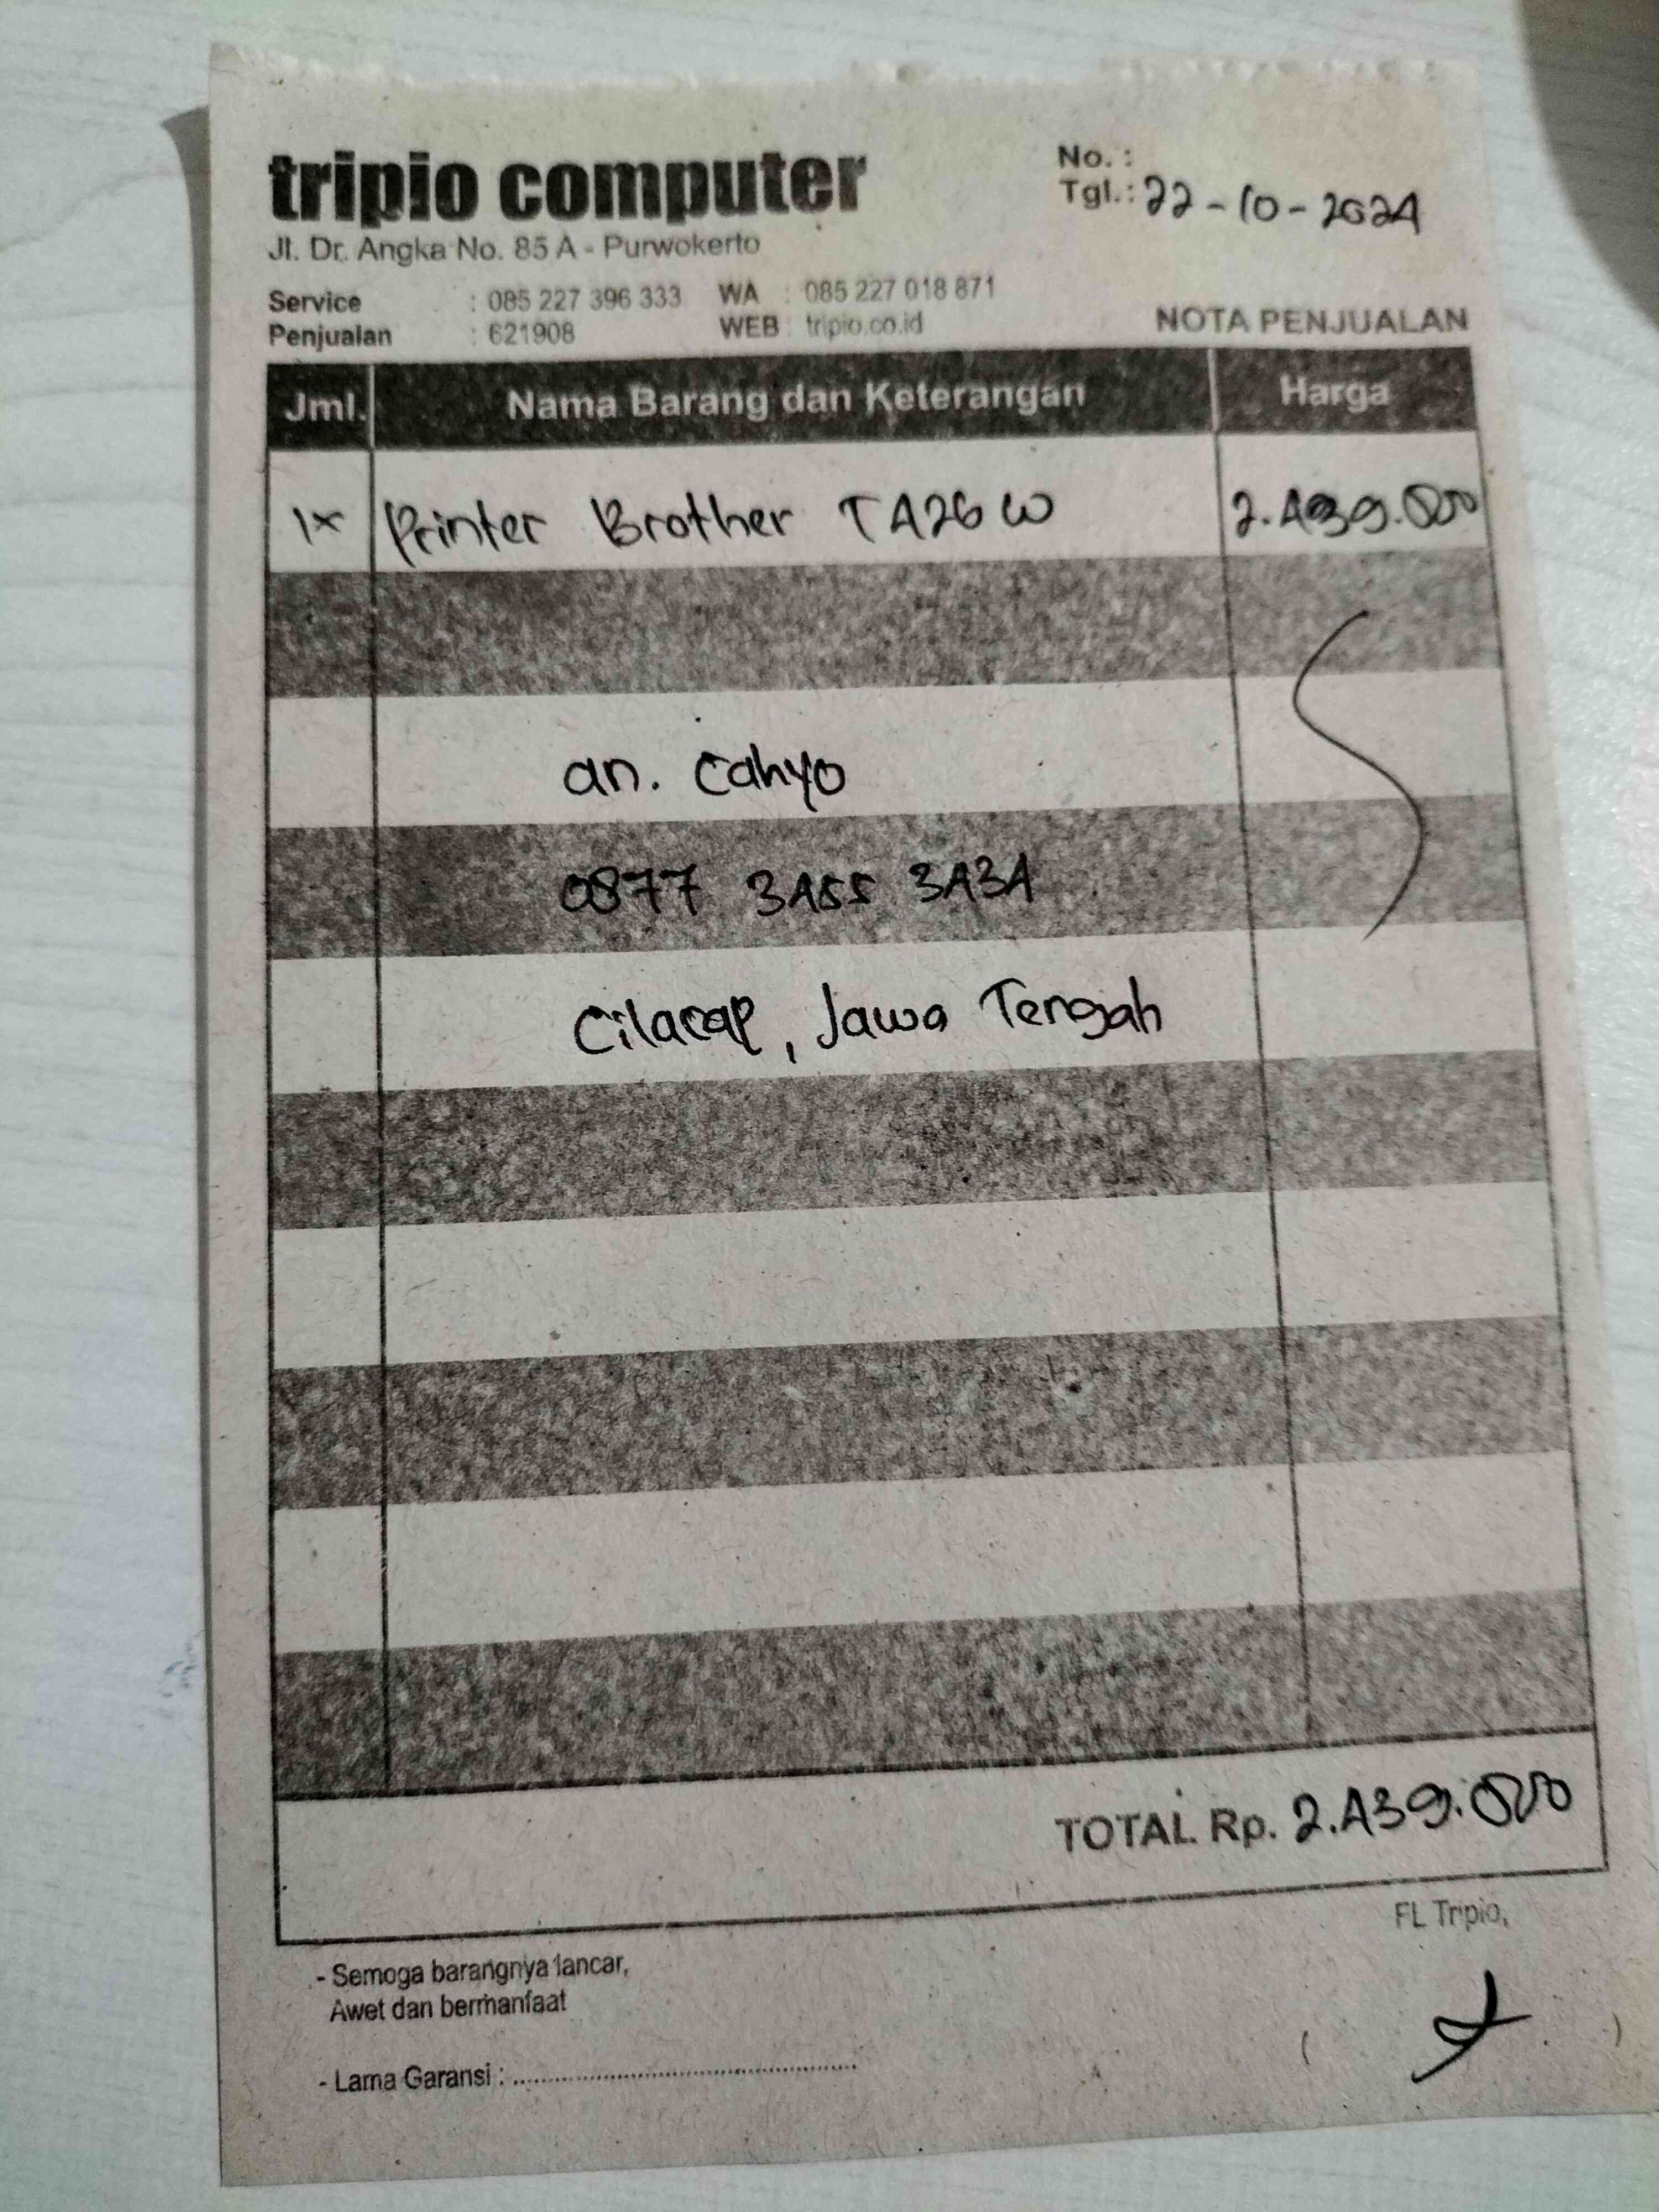 tripio computer
Jl. Dr. Angka No. 85 A - Purwokerto
No. :
Tgl. : 22-10-2024
Service : 085 227 396 333 WA : 085 227 018 871
Penjualan : 621908 WEB : tripio.co.id
NOTA PENJUALAN
Jml. Nama Barang dan Keterangan Harga
1x Printer Brother T426 W 2.439.000
an. Cahyo
0877 3455 3434
Cilacap, Jawa Tengah
TOTAL Rp. 2.439.000
FL Tripio,
- Semoga barangnya lancar,
Awet dan bermanfaat
- Lama Garansi : ..............................
( )